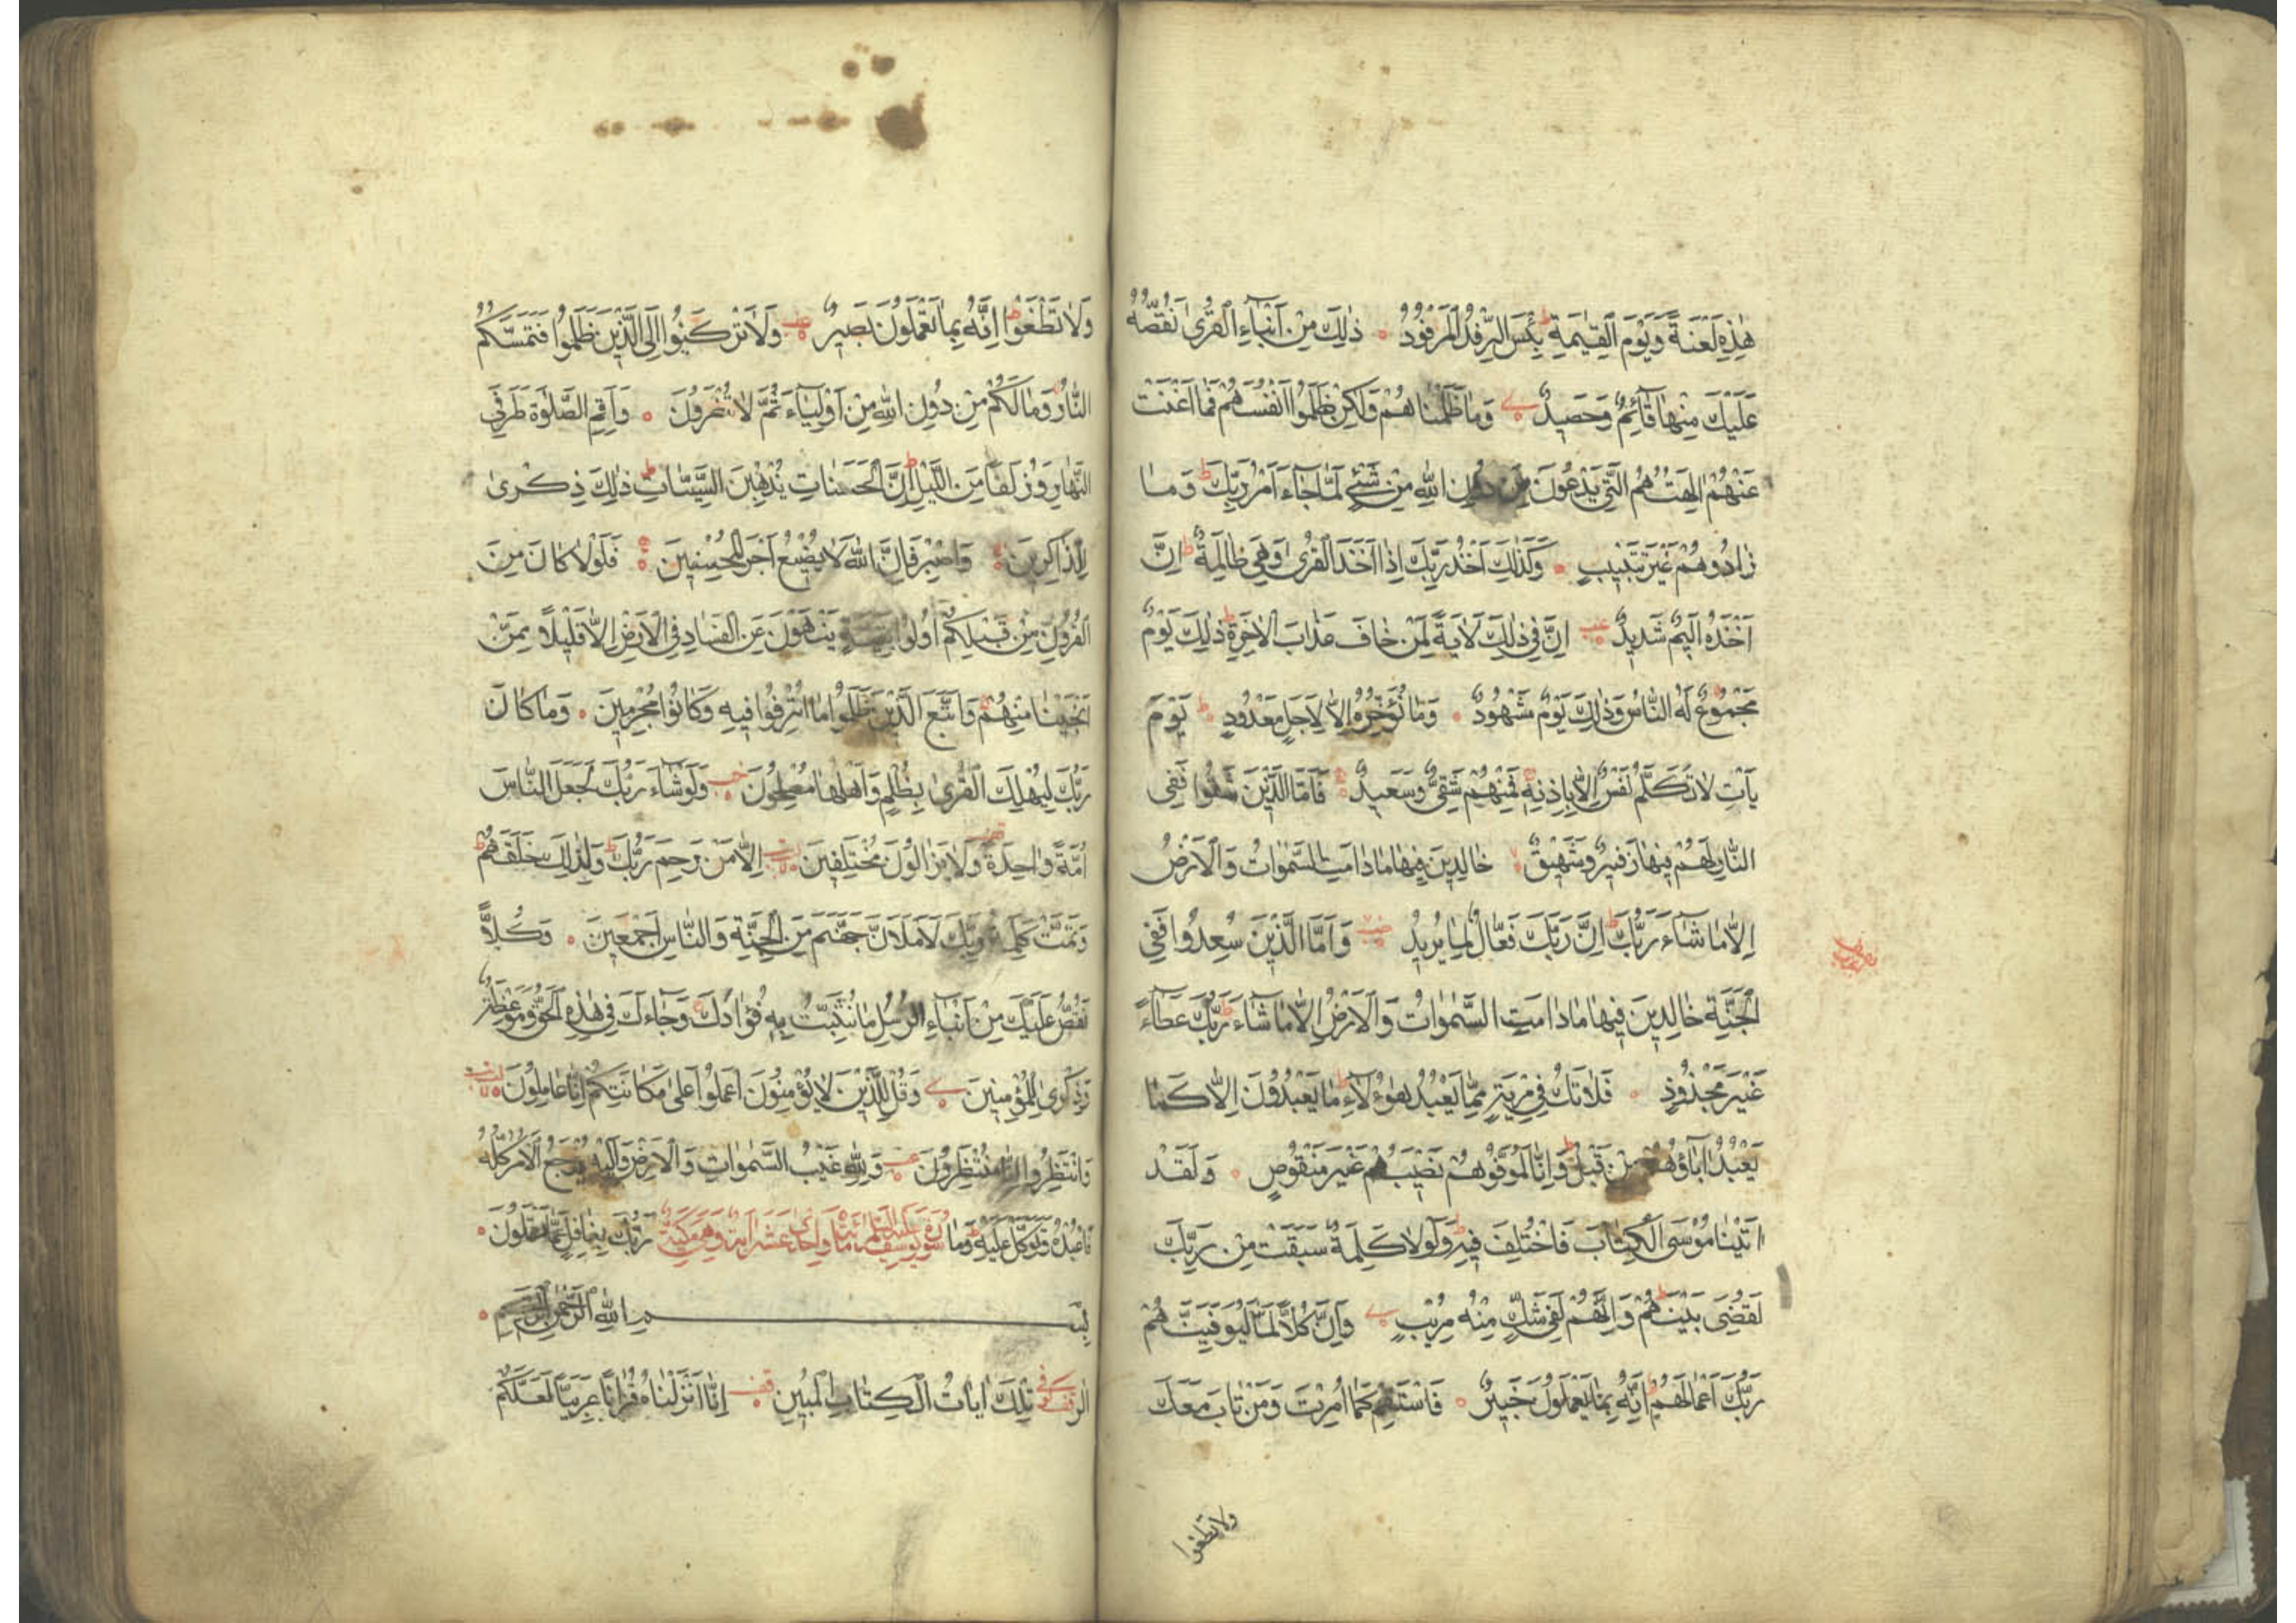 هٰذِهِ لَعْنَةً وَيَوْمَ الْقِيٰمَةِ بِئْسَ الرِّفْدُ الْمَرْفُودُ ذٰلِكَ مِنْ اَنْبَاءِ الْقُرٰى نَقُصُّهُ
عَلَيْكَ مِنْهَا قَآئِمٌ وَحَصِيدٌ وَمَا ظَلَمْنَاهُمْ وَلٰكِنْ ظَلَمُوا اَنْفُسَهُمْ فَمَا اَغْنَتْ
عَنْهُمْ اٰلِهَتُهُمُ الَّتِي يَدْعُونَ مِنْ دُونِ اللّٰهِ مِنْ شَيْءٍ لَمَّا جَآءَ اَمْرُ رَبِّكَ ط وَمَا
زَادُوهُمْ غَيْرَ تَتْبِيبٍ وَكَذٰلِكَ اَخْذُ رَبِّكَ اِذَا اَخَذَ الْقُرٰى وَهِيَ ظَالِمَةٌ ط اِنَّ
اَخْذَهُ اَلِيمٌ شَدِيدٌ اِنَّ فِي ذٰلِكَ لَاٰيَةً لِمَنْ خَافَ عَذَابَ الْاٰخِرَةِ ط ذٰلِكَ يَوْمٌ
مَجْمُوعٌ لَهُ النَّاسُ وَذٰلِكَ يَوْمٌ مَشْهُودٌ وَمَا نُؤَخِّرُهُ اِلَّا لِاَجَلٍ مَعْدُودٍ ط يَوْمَ
يَاْتِ لَا تَكَلَّمُ نَفْسٌ اِلَّا بِاِذْنِهِ فَمِنْهُمْ شَقِيٌّ وَسَعِيدٌ فَاَمَّا الَّذِينَ شَقُوا فَفِي
النَّارِ لَهُمْ فِيهَا زَفِيرٌ وَشَهِيقٌ خَالِدِينَ فِيهَا مَا دَامَتِ السَّمٰوَاتُ وَالْاَرْضُ
اِلَّا مَا شَآءَ رَبُّكَ ط اِنَّ رَبَّكَ فَعَّالٌ لِمَا يُرِيدُ وَاَمَّا الَّذِينَ سُعِدُوا فَفِي
الْجَنَّةِ خَالِدِينَ فِيهَا مَا دَامَتِ السَّمٰوَاتُ وَالْاَرْضُ اِلَّا مَا شَآءَ رَبُّكَ ط عَطَآءً
غَيْرَ مَجْذُوذٍ فَلَا تَكُ فِي مِرْيَةٍ مِمَّا يَعْبُدُ هٰؤُلَاءِ ط مَا يَعْبُدُونَ اِلَّا كَمَا
يَعْبُدُ اٰبَاؤُهُمْ مِنْ قَبْلُ ط وَاِنَّا لَمُوَفُّوهُمْ نَصِيبَهُمْ غَيْرَ مَنْقُوصٍ وَلَقَدْ
اٰتَيْنَا مُوسَى الْكِتَابَ فَاخْتُلِفَ فِيهِ ط وَلَوْلَا كَلِمَةٌ سَبَقَتْ مِنْ رَبِّكَ
لَقُضِيَ بَيْنَهُمْ ط وَاِنَّهُمْ لَفِي شَكٍّ مِنْهُ مُرِيبٍ وَاِنَّ كُلًّا لَمَّا لَيُوَفِّيَنَّهُمْ
رَبُّكَ اَعْمَالَهُمْ ط اِنَّهُ بِمَا يَعْمَلُونَ خَبِيرٌ فَاسْتَقِمْ كَمَا اُمِرْتَ وَمَنْ تَابَ مَعَكَ
ولا تطغوا
وَلَا تَطْغَوْا ط اِنَّهُ بِمَا تَعْمَلُونَ بَصِيرٌ وَلَا تَرْكَنُوا اِلَى الَّذِينَ ظَلَمُوا فَتَمَسَّكُمُ
النَّارُ وَمَا لَكُمْ مِنْ دُونِ اللّٰهِ مِنْ اَوْلِيَآءَ ثُمَّ لَا تُنْصَرُونَ وَاَقِمِ الصَّلٰوةَ طَرَفَيِ
النَّهَارِ وَزُلَفًا مِنَ اللَّيْلِ ط اِنَّ الْحَسَنَاتِ يُذْهِبْنَ السَّيِّئَاتِ ط ذٰلِكَ ذِكْرٰى
لِلذَّاكِرِينَ وَاصْبِرْ فَاِنَّ اللّٰهَ لَا يُضِيعُ اَجْرَ الْمُحْسِنِينَ فَلَوْلَا كَانَ مِنَ
الْقُرُونِ مِنْ قَبْلِكُمْ اُولُوا بَقِيَّةٍ يَنْهَوْنَ عَنِ الْفَسَادِ فِي الْاَرْضِ اِلَّا قَلِيلًا مِمَّنْ
اَنْجَيْنَا مِنْهُمْ وَاتَّبَعَ الَّذِينَ ظَلَمُوا مَا اُتْرِفُوا فِيهِ وَكَانُوا مُجْرِمِينَ وَمَا كَانَ
رَبُّكَ لِيُهْلِكَ الْقُرٰى بِظُلْمٍ وَاَهْلُهَا مُصْلِحُونَ وَلَوْ شَآءَ رَبُّكَ لَجَعَلَ النَّاسَ
اُمَّةً وَاحِدَةً وَلَا يَزَالُونَ مُخْتَلِفِينَ اِلَّا مَنْ رَحِمَ رَبُّكَ ط وَلِذٰلِكَ خَلَقَهُمْ ط
وَتَمَّتْ كَلِمَةُ رَبِّكَ لَاَمْلَاَنَّ جَهَنَّمَ مِنَ الْجِنَّةِ وَالنَّاسِ اَجْمَعِينَ وَكُلًّا
نَقُصُّ عَلَيْكَ مِنْ اَنْبَاءِ الرُّسُلِ مَا نُثَبِّتُ بِهِ فُؤَادَكَ وَجَآءَكَ فِي هٰذِهِ الْحَقُّ وَمَوْعِظَةٌ
وَذِكْرٰى لِلْمُؤْمِنِينَ وَقُلْ لِلَّذِينَ لَا يُؤْمِنُونَ اعْمَلُوا عَلٰى مَكَانَتِكُمْ اِنَّا عَامِلُونَ
وَانْتَظِرُوا اِنَّا مُنْتَظِرُونَ وَلِلّٰهِ غَيْبُ السَّمٰوَاتِ وَالْاَرْضِ وَاِلَيْهِ يُرْجَعُ الْاَمْرُ كُلُّهُ
فَاعْبُدْهُ وَتَوَكَّلْ عَلَيْهِ ط وَمَا سورة يوسف عليه السلام مائة واحدى عشر اية وهي مكية رَبُّكَ بِغَافِلٍ عَمَّا تَعْمَلُونَ
بِسْمِ اللّٰهِ الرَّحْمٰنِ الرَّحِيمِ
الٓرٰ تِلْكَ اٰيَاتُ الْكِتَابِ الْمُبِينِ اِنَّا اَنْزَلْنَاهُ قُرْاٰنًا عَرَبِيًّا لَعَلَّكُمْ